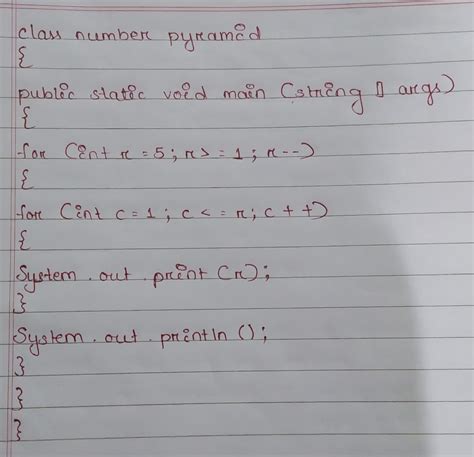 class number pyramid
{
public static void main (string [] args)
{
for (int r = 5; r > = 1; r--)
{
for (int c = 1; c < = r; c + +)
{
System.out.print (r);
}
System.out.println ();
}
}
}